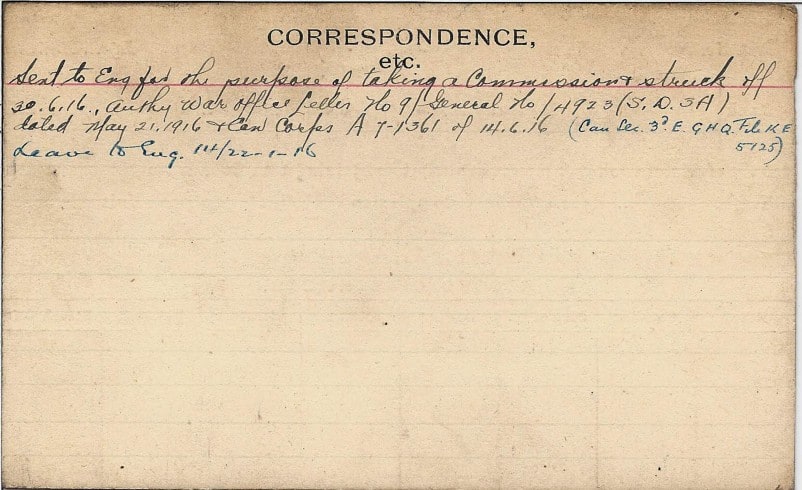 CORRESPONDENCE,
etc.
Sent to Eng for the purpose of taking a Commission & struck off
30.6.16., Authy War Office Letter No 9/General No/4923 (S.D.3A)
dated May 21.1916 & Can Corps A 7-1361 of 14.6.16 (Can Sec. 3rd E. G.H.Q. File K E
5125)
Leave to Eng. 14/22-1-16